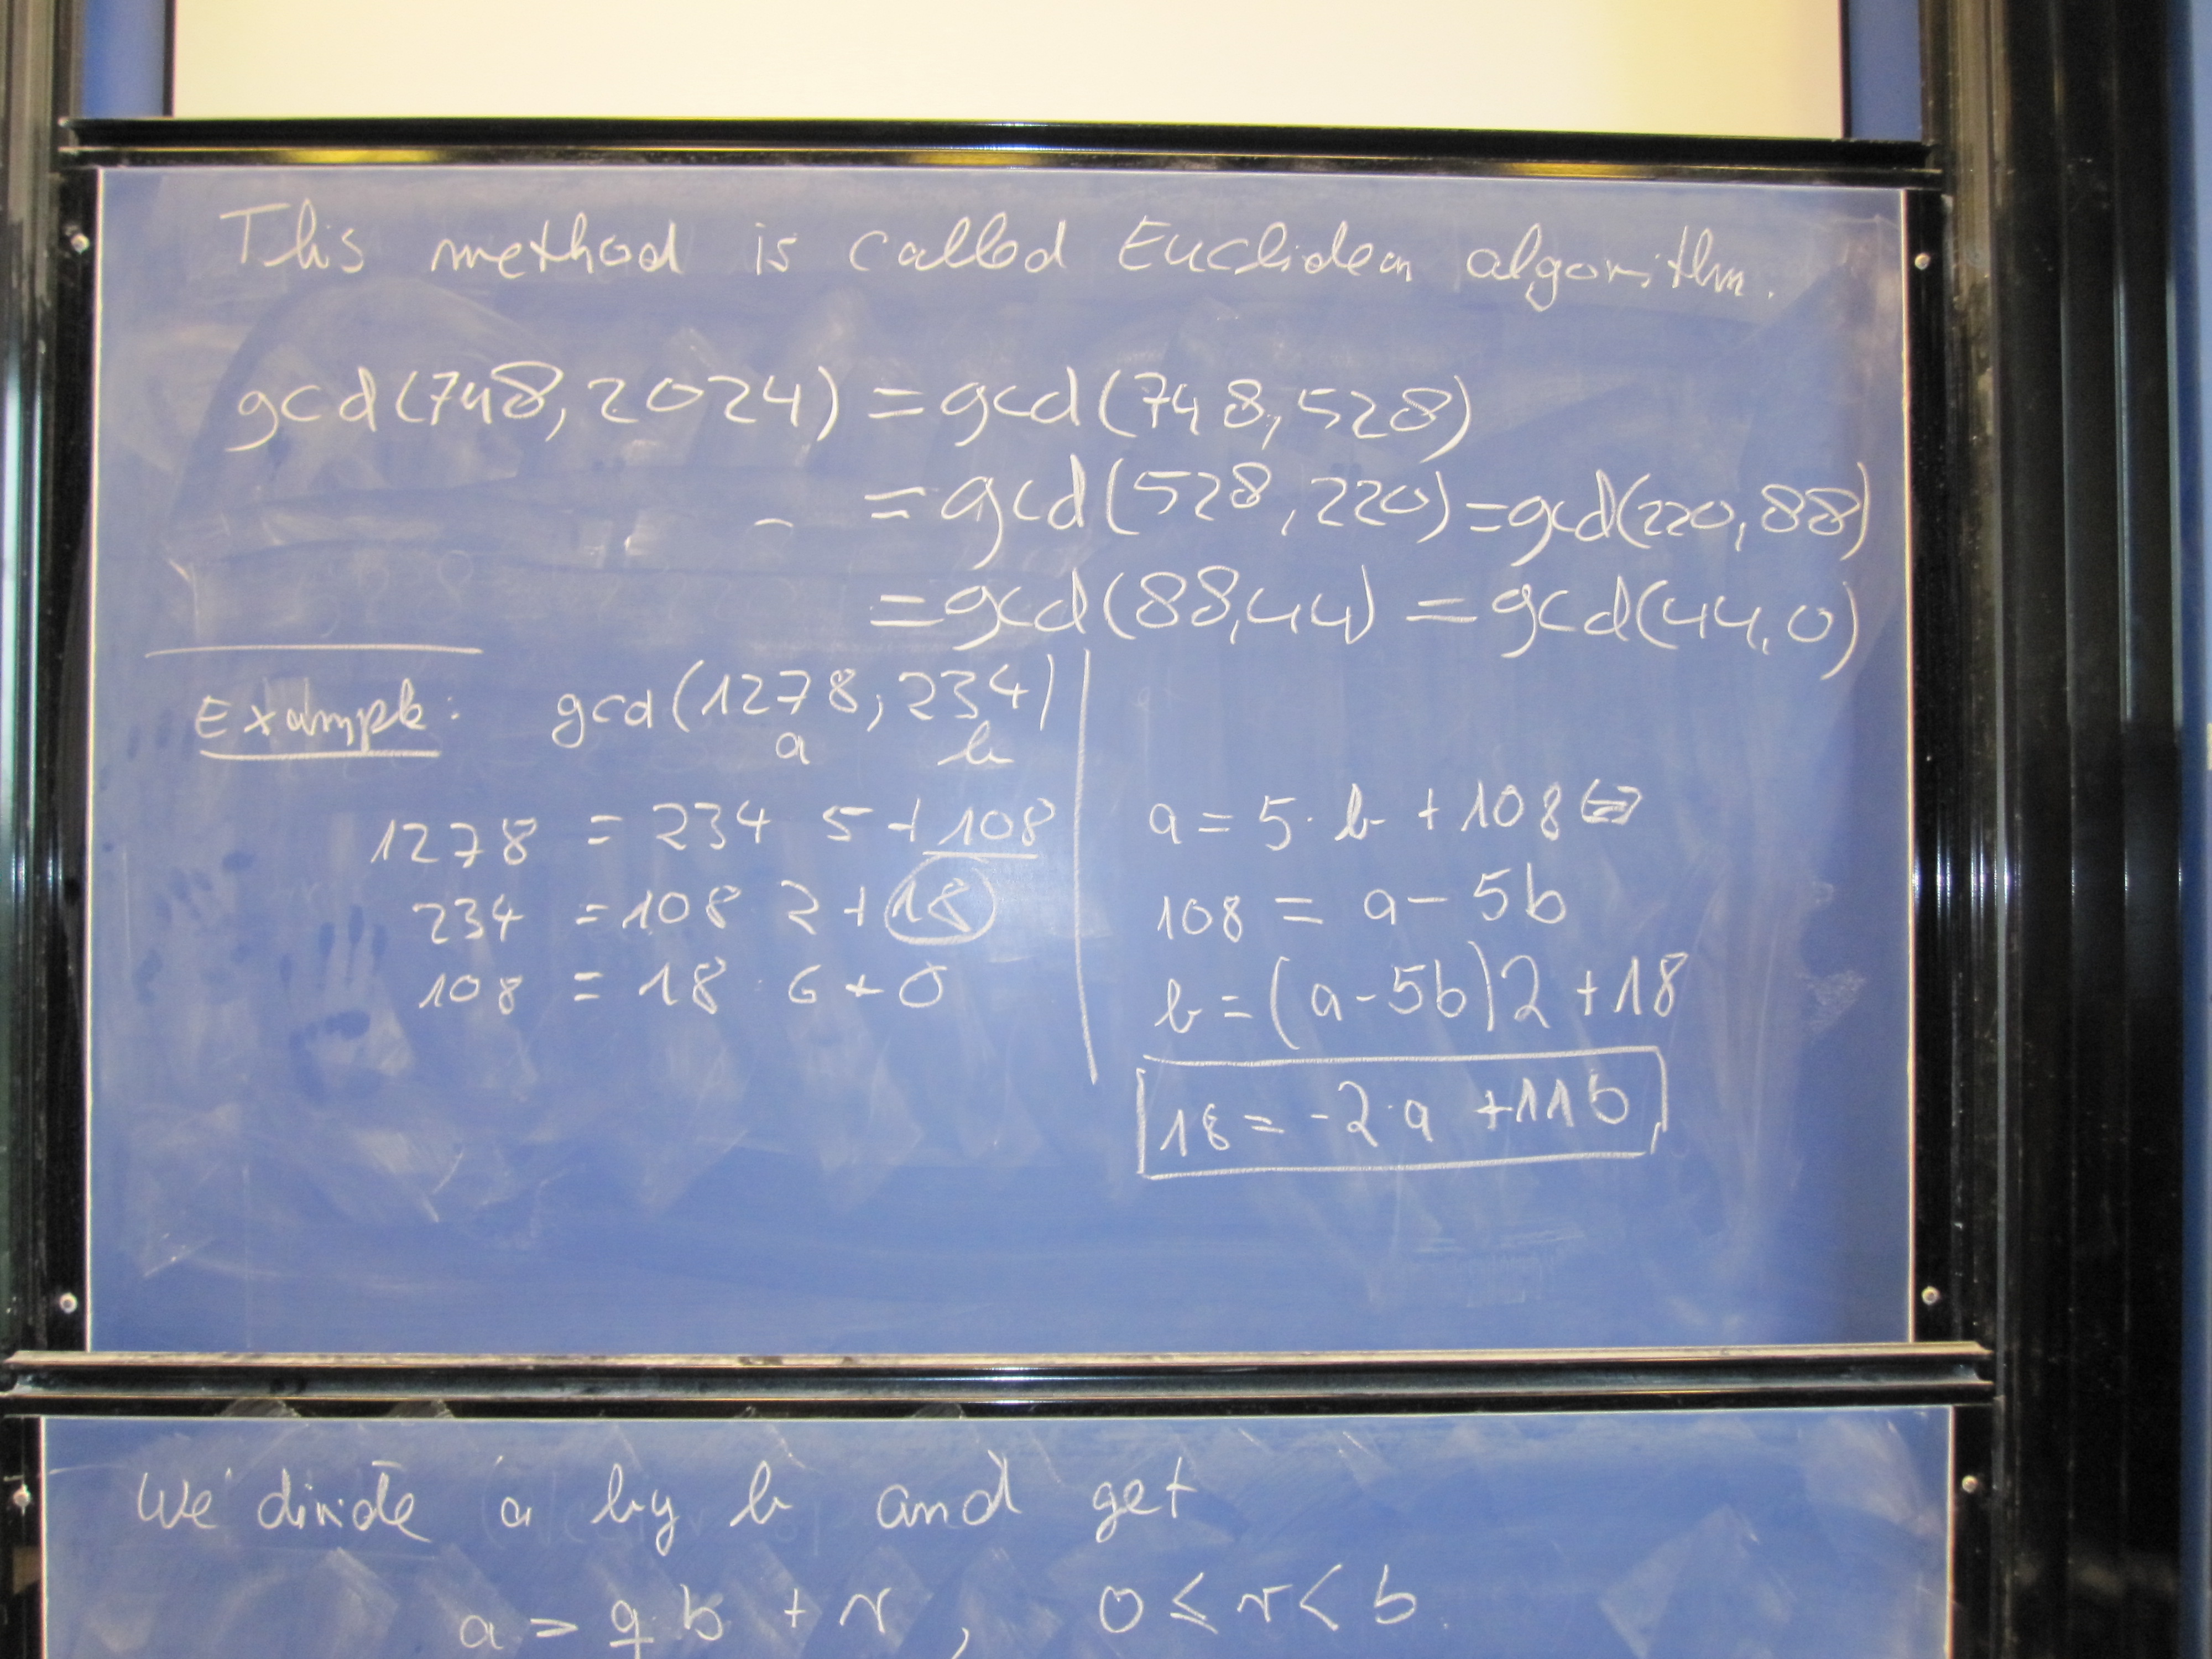 This method is called Euclidean algorithm.
gcd(748, 2024) = gcd(748, 528)
= gcd(528, 220) = gcd(220, 88)
= gcd(88, 44) = gcd(44, 0)
Example: gcd(1278, 234)
a b
1278 = 234 5 + 108
234 = 108 2 + 18
108 = 18 · 6 + 0
a = 5 · b + 108 ⇔
108 = a - 5b
b = (a - 5b) 2 + 18
18 = -2 · a + 11b
We divide a by b and get
a = q b + r , 0 ≤ r < b.